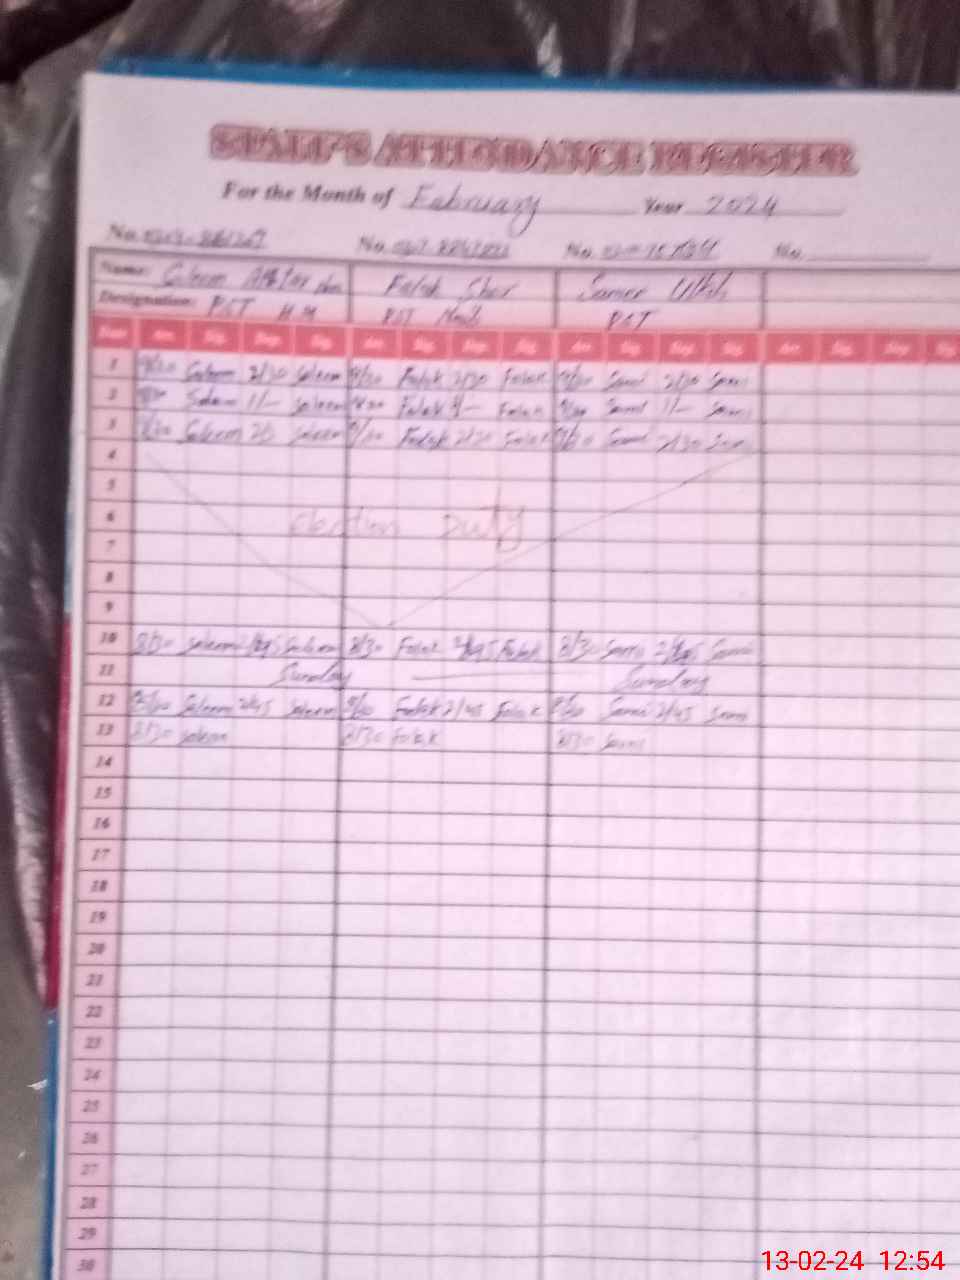 STAFF'S ATTENDANCE REGISTER
For the Month of February Year 2024
No. No. No. No.
Name: Falak Sher
Designation: PST H M PST PST
Date Arr. Sig. Dep. Sig. Arr. Sig. Dep. Sig. Arr. Sig. Dep. Sig. Arr. Sig. Dep. Sig.
1 Saleem 2/30 Saleem Falak 2/30 Falak Sami 2/30 Sami
2 Saleem 1/— Saleem Falak Falak Sami 1/— Sami
3 Saleem Saleem Falak 2/30 Falak Sami 2/30 Sami
4
5
6 election Duty
7
8
9
10 8/30 Saleem 2/45 Saleem 8/30 Falak 2/45 Falak 8/30 Sami 2/45 Sami
11 Sunday Sunday
12 8/30 Saleem 2/45 Saleem 8/30 Falak 2/45 Falak 8/30 Sami 2/45 Sami
13 8/30 Saleem 8/30 Falak 8/30 Sami
14
15
16
17
18
19
20
21
22
23
24
25
26
27
28
29
30
13-02-24 12:54